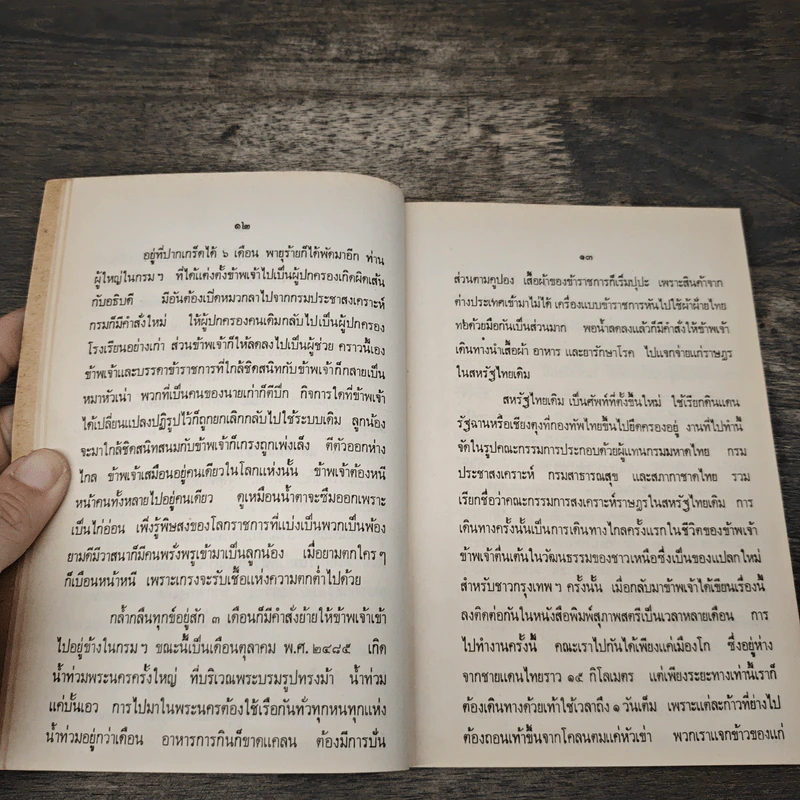 ๑๒
อยู่ที่ปากเกร็ดได้ ๖ เดือน พายุร้ายก็ได้พัดมาอีก ท่าน
ผู้ใหญ่ในกรมฯ ที่ได้แต่งตั้งข้าพเจ้าไปเป็นผู้ปกครองเกิดผิดเส้น
กับอธิบดี มีอันต้องเปิดหมวกลาไปจากกรมประชาสงเคราะห์
กรมก็มีคำสั่งใหม่ ให้ผู้ปกครองคนเดิมกลับไปเป็นผู้ปกครอง
โรงเรียนอย่างเก่า ส่วนข้าพเจ้าก็ให้ลดลงไปเป็นผู้ช่วย คราวนี้เอง
ข้าพเจ้าและบรรดาข้าราชการที่ใกล้ชิดสนิทกับข้าพเจ้าก็กลายเป็น
หมาหัวเน่า พวกที่เป็นคนของนายเก่าก็ตีปีก กิจการใดที่ข้าพเจ้า
ได้เปลี่ยนแปลงปฏิรูปไว้ก็ถูกยกเลิกกลับไปใช้ระบบเดิม ลูกน้อง
จะมาใกล้ชิดสนิทสนมกับข้าพเจ้าก็เกรงถูกเพ่งเล็ง ตีตัวออกห่าง
ไกล ข้าพเจ้าเสมือนอยู่คนเดียวในโลกแห่งนั้น ข้าพเจ้าต้องหนี
หน้าคนทั้งหลายไปอยู่คนเดียว ดูเหมือนน้ำตาจะซึมออกเพราะ
เป็นไก่อ่อน เพิ่งรู้พิษสงของโลกราชการที่แบ่งเป็นพวกเป็นพ้อง
ยามดีมีวาสนาก็มีคนพรั่งพรูเข้ามาเป็นลูกน้อง เมื่อยามตกใครๆ
ก็เบือนหน้าหนี เพราะเกรงจะรับเชื้อแห่งความตกต่ำไปด้วย
กล้ำกลืนทุกข์อยู่สัก ๓ เดือนก็มีคำสั่งย้ายให้ข้าพเจ้าเข้า
ไปอยู่ข้างในกรมฯ ขณะนี้เป็นเดือนตุลาคม พ.ศ. ๒๔๘๕ เกิด
น้ำท่วมพระนครครั้งใหญ่ ที่บริเวณพระบรมรูปทรงม้า น้ำท่วม
แค่บั้นเอว การไปมาในพระนครต้องใช้เรือกันทั่วทุกหนทุกแห่ง
น้ำท่วมอยู่กว่าเดือน อาหารการกินก็ขาดแคลน ต้องมีการปัน
๑๓
ส่วนตามคูปอง เสื้อผ้าของข้าราชการก็เริ่มปุปะ เพราะสินค้าจาก
ต่างประเทศเข้ามาไม่ได้ เครื่องแบบข้าราชการหันไปใช้ผ้าฝ้ายไทย
ทอด้วยมือกันเป็นส่วนมาก พอน้ำลดลงแล้วก็มีคำสั่งให้ข้าพเจ้า
เดินทางนำเสื้อผ้า อาหาร และยารักษาโรค ไปแจกจ่ายแก่ราษฎร
ในสหรัฐไทยเดิม
สหรัฐไทยเดิม เป็นศัพท์ที่ตั้งขึ้นใหม่ ใช้เรียกดินแดน
รัฐฉานหรือเชียงตุงที่กองทัพไทยขึ้นไปยึดครองอยู่ งานที่ไปทำนี้
จัดในรูปคณะกรรมการประกอบด้วยผู้แทนกรมมหาดไทย กรม
ประชาสงเคราะห์ กรมสาธารณสุข และสภากาชาดไทย รวม
เรียกชื่อว่าคณะกรรมการสงเคราะห์ราษฎรในสหรัฐไทยเดิม การ
เดินทางครั้งนั้นเป็นการเดินทางไกลครั้งแรกในชีวิตของข้าพเจ้า
ข้าพเจ้าตื่นเต้นในวัฒนธรรมของชาวเหนือซึ่งเป็นของแปลกใหม่
สำหรับชาวกรุงเทพฯ ครั้งนั้น เมื่อกลับมาข้าพเจ้าได้เขียนเรื่องนี้
ลงติดต่อกันในหนังสือพิมพ์สุภาพสตรีเป็นเวลาหลายเดือน การ
ไปทำงานครั้งนี้ คณะเราไปกันได้เพียงแค่เมืองโก ซึ่งอยู่ห่าง
จากชายแดนไทยราว ๑๕ กิโลเมตร แต่เพียงระยะทางเท่านี้เราก็
ต้องเดินทางด้วยเท้าใช้เวลาถึง ๑ วันเต็ม เพราะแต่ละก้าวที่ย่างไป
ต้องถอนเท้าขึ้นจากโคลนตมแค่หัวเข่า พวกเราแจกข้าวของแก่